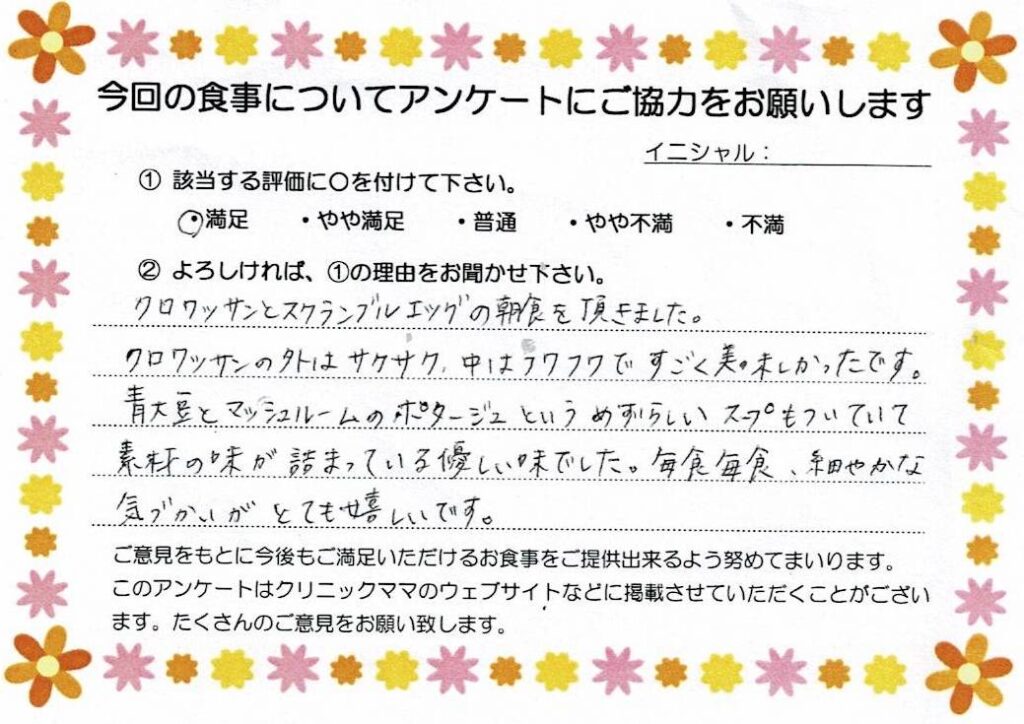 今回の食事についてアンケートにご協力をお願いします
イニシャル：
① 該当する評価に〇を付けて下さい。
・満足 ・やや満足 ・普通 ・やや不満 ・不満
② よろしければ、①の理由をお聞かせ下さい。
クロワッサンとスクランブルエッグの朝食を頂きました。
クロワッサンの外はサクサク、中はフワフワですごく美味しかったです。
青大豆とマッシュルームのポタージュというめずらしいスープもついていて
素材の味が詰まっている優しい味でした。毎食毎食、細やかな
気づかいがとても嬉しいです。
ご意見をもとに今後もご満足いただけるお食事をご提供出来るよう努めてまいります。
このアンケートはクリニックママのウェブサイトなどに掲載させていただくことがござい
ます。たくさんのご意見をお願い致します。